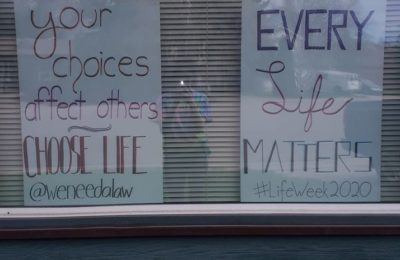 your
choices
affect others
CHOOSE LIFE
@weneedalaw
EVERY
Life
MATTERS
#LifeWeek2020